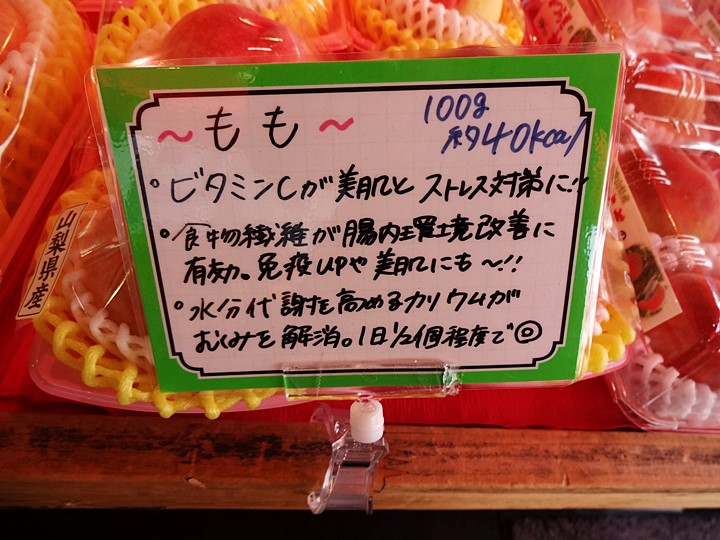 ～もも～
100g
約40kcal
・ビタミンCが美肌とストレス対策に!!
・食物繊維が腸内環境改善に
有効。免疫UPや美肌にも～!!
・水分代謝を高めるカリウムが
むくみを解消。1日1/2個程度で◎
山梨県産